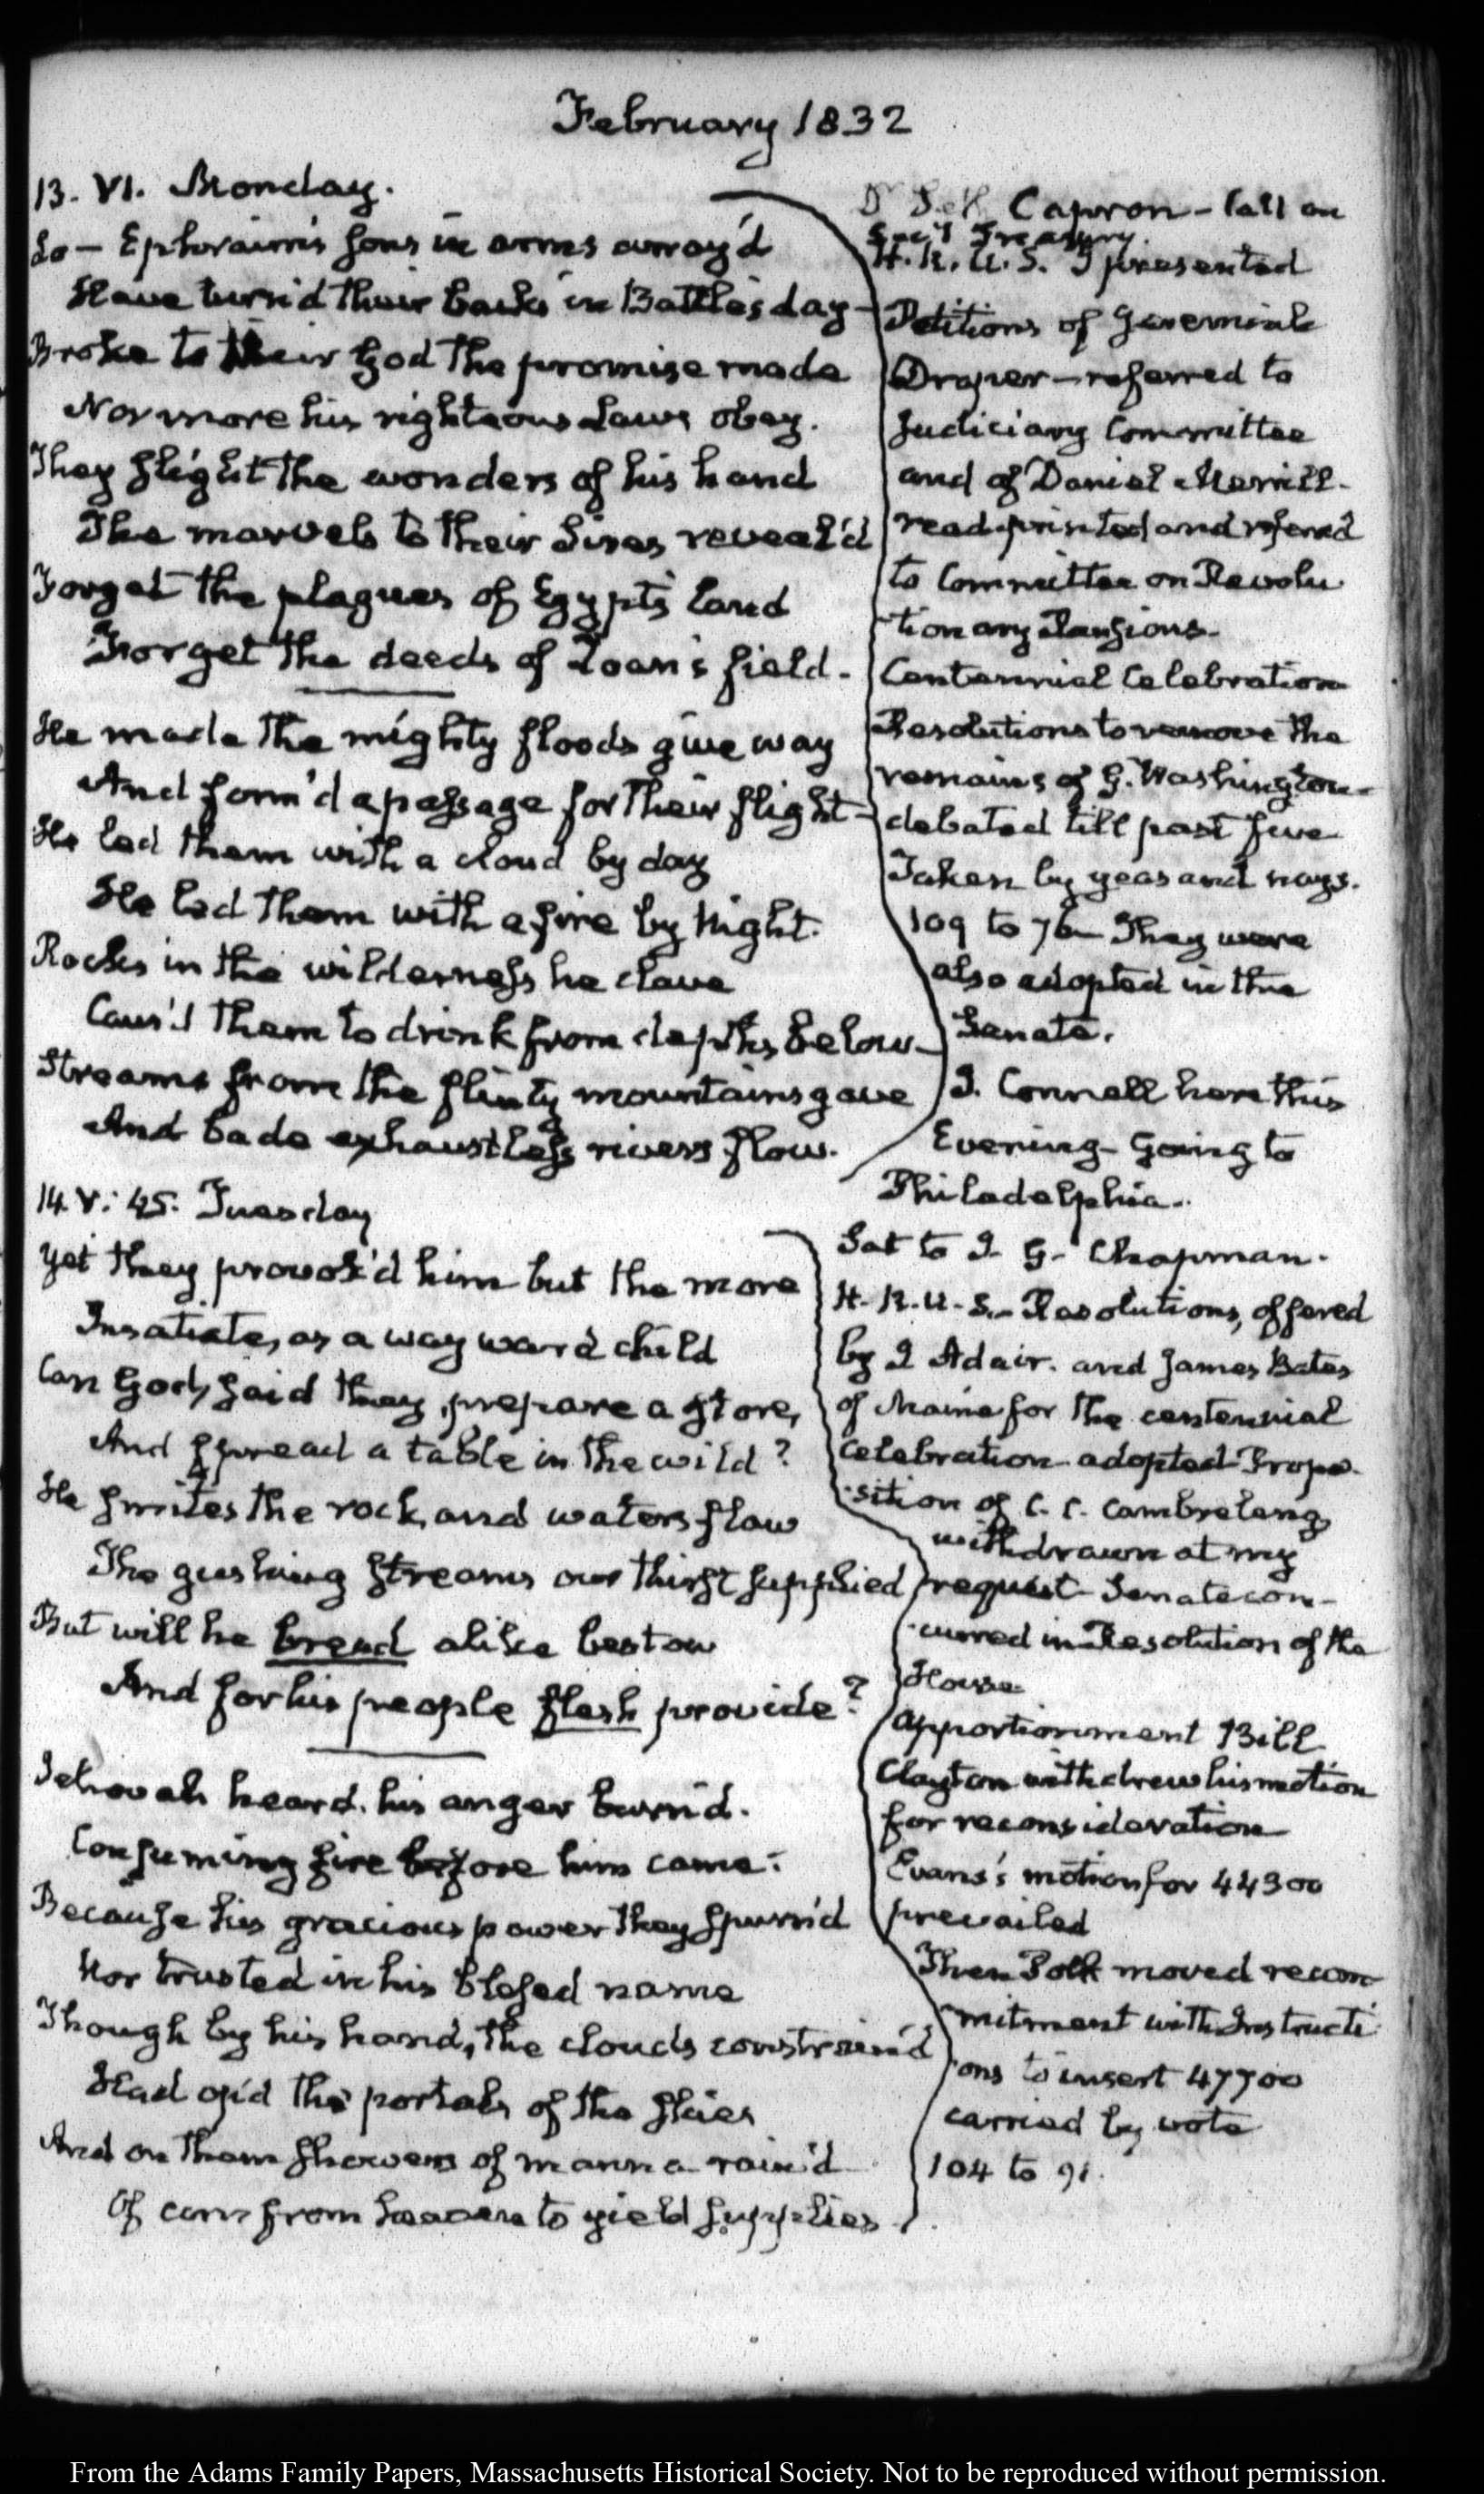 February 1832
13. VI. Monday.
Lo — Ephraim's sons in arms array'd
Have turn'd their backs in Battle's day —
Broke to their God the promise made
Nor more his righteous Laws obey.
They slight the wonders of his hand
The marvels to their Sires reveal'd
Forget the plagues of Egypt's land
Forget the deeds of Zoan's field.
He made the mighty floods give way
And form'd a passage for their flight —
He led them with a cloud by day
He led them with a fire by Night.
Rocks in the wilderness he clave
Caus'd them to drink from depths below —
Streams from the flinty mountains gave
And bade exhaustless rivers flow.
D. Capron — Call on
Secy Treasury.
H. R. U. S. I presented
Petitions of
Draper — referred to
Judiciary Committee
and of Daniel Merrill —
read printed and referred
to Committee on Revolu
tionary Pensions.
Centennial Celebration
Resolutions to remove the
remains of G. Washington —
debated till past five
Taken by yeas and nays.
109 to 76 — They were
also adopted in the
Senate.
J. Connell here this
Evening — Going to
Philadelphia.
14. V: 45. Tuesday
Yet they provok'd him but the more
Insatiate, as a wayward child
Can God, said they, prepare a store,
And spread a table in the wild?
He smites the rock, and waters flow
The gushing streams our thirst supplied
But will he bread alike bestow
And for his people flesh provide?
Jehovah heard. his anger burn'd.
Consuming fire before him came:
Because his gracious power they spurn'd
Nor trusted in his blessed name
Though by his hand, the clouds constrain'd
Had op'd the portals of the skies
And on them showers of manna rain'd
Of corn from heaven to yield supplies.
Sat to J. G. Chapman.
H. R. U. S. — Resolutions, offered
by J Adair. and James Bates
of Maine for the centennial
celebration adopted — Propo-
sition of C. C. Cambreleng,
withdrawn at my
request — Senate con-
curred in Resolution of the
House
Apportionment Bill
Clayton withdrew his motion
for reconsideration
Evans's motion for 44300
prevailed
Then Polk moved recom
mitment with Instructi
ons to insert 47700
carried by vote
104 to 91.
From the Adams Family Papers, Massachusetts Historical Society. Not to be reproduced without permission.